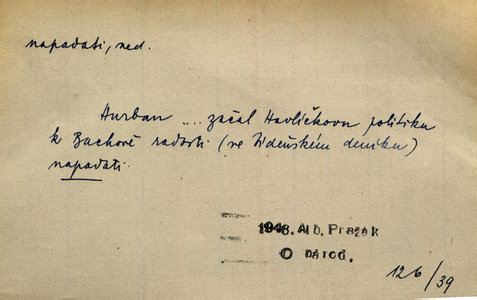 napadati, ned.
Hurban .... začal Havlíčkovu politiku
k Bachově radosti (ve Vídeňském deníku)
napadati.
1946. Alb. Pražák
O národ.
126/39